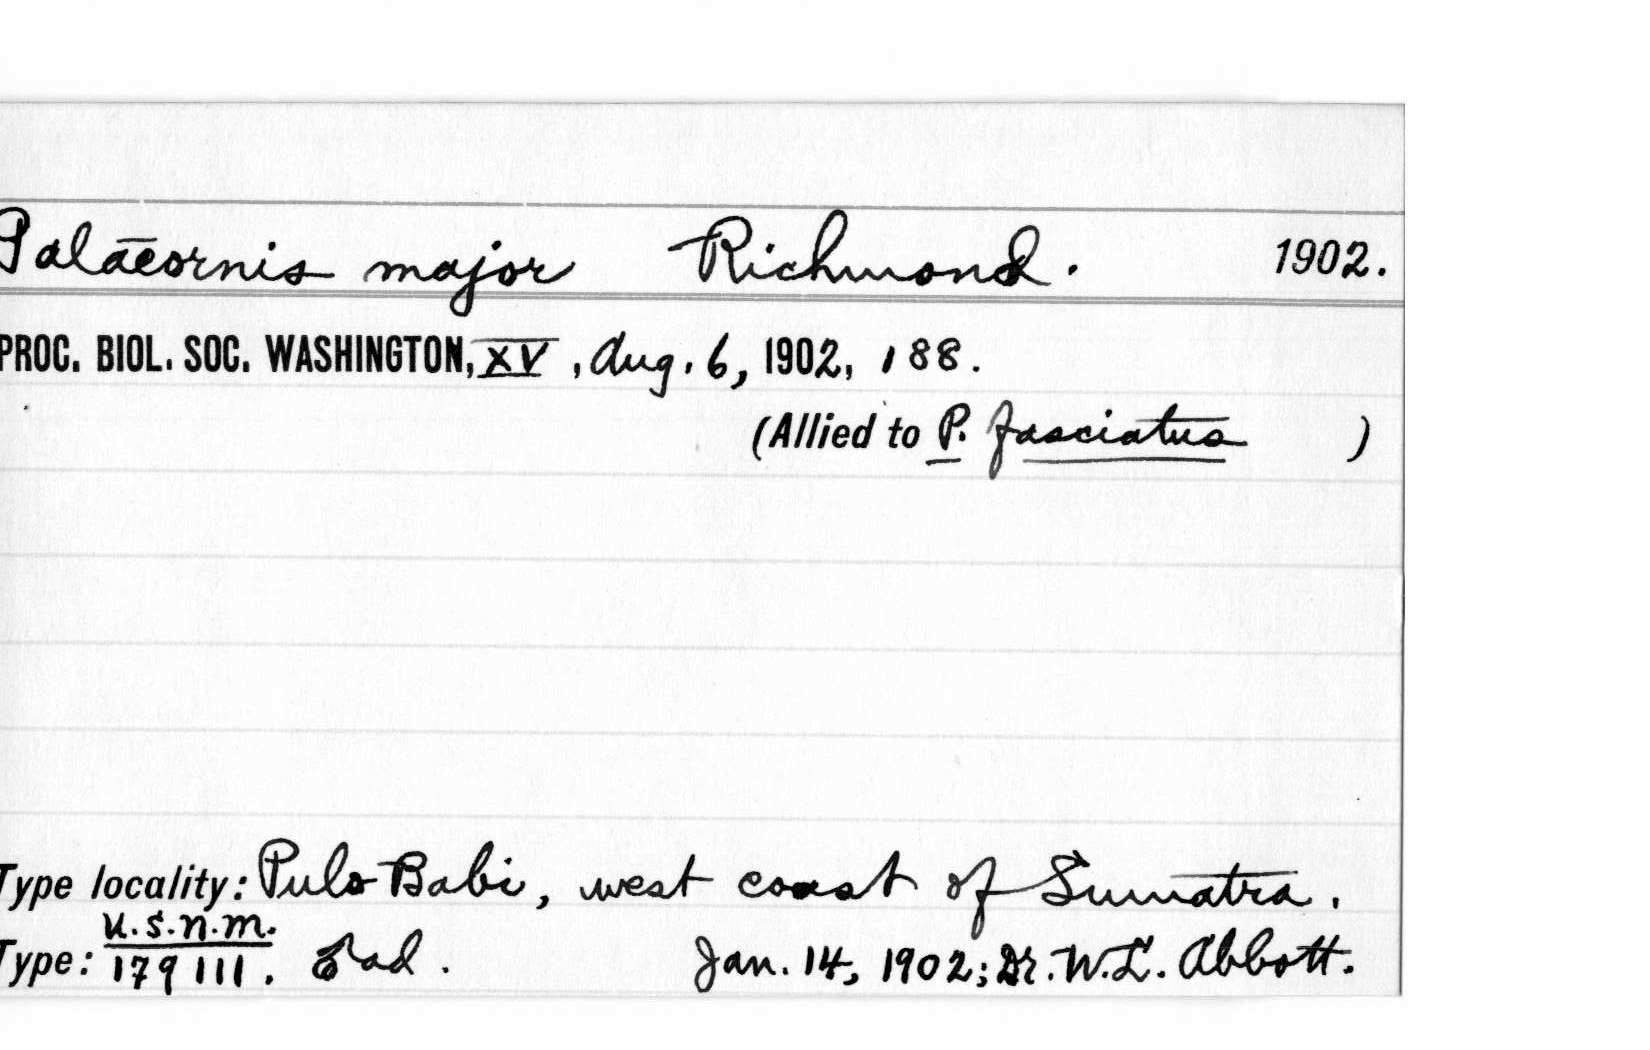 Palaeornis major Richmond. 1902.
PROC. BIOL. SOC. WASHINGTON, XV, Aug. 6, 1902, 188.
(Allied to P. fasciatus )
Type locality: Pulo Babi, west coast of Sumatra.
U.S.N.M.
Type: 179111. ♂ ad. Jan. 14, 1902; Dr. W. L. Abbott.